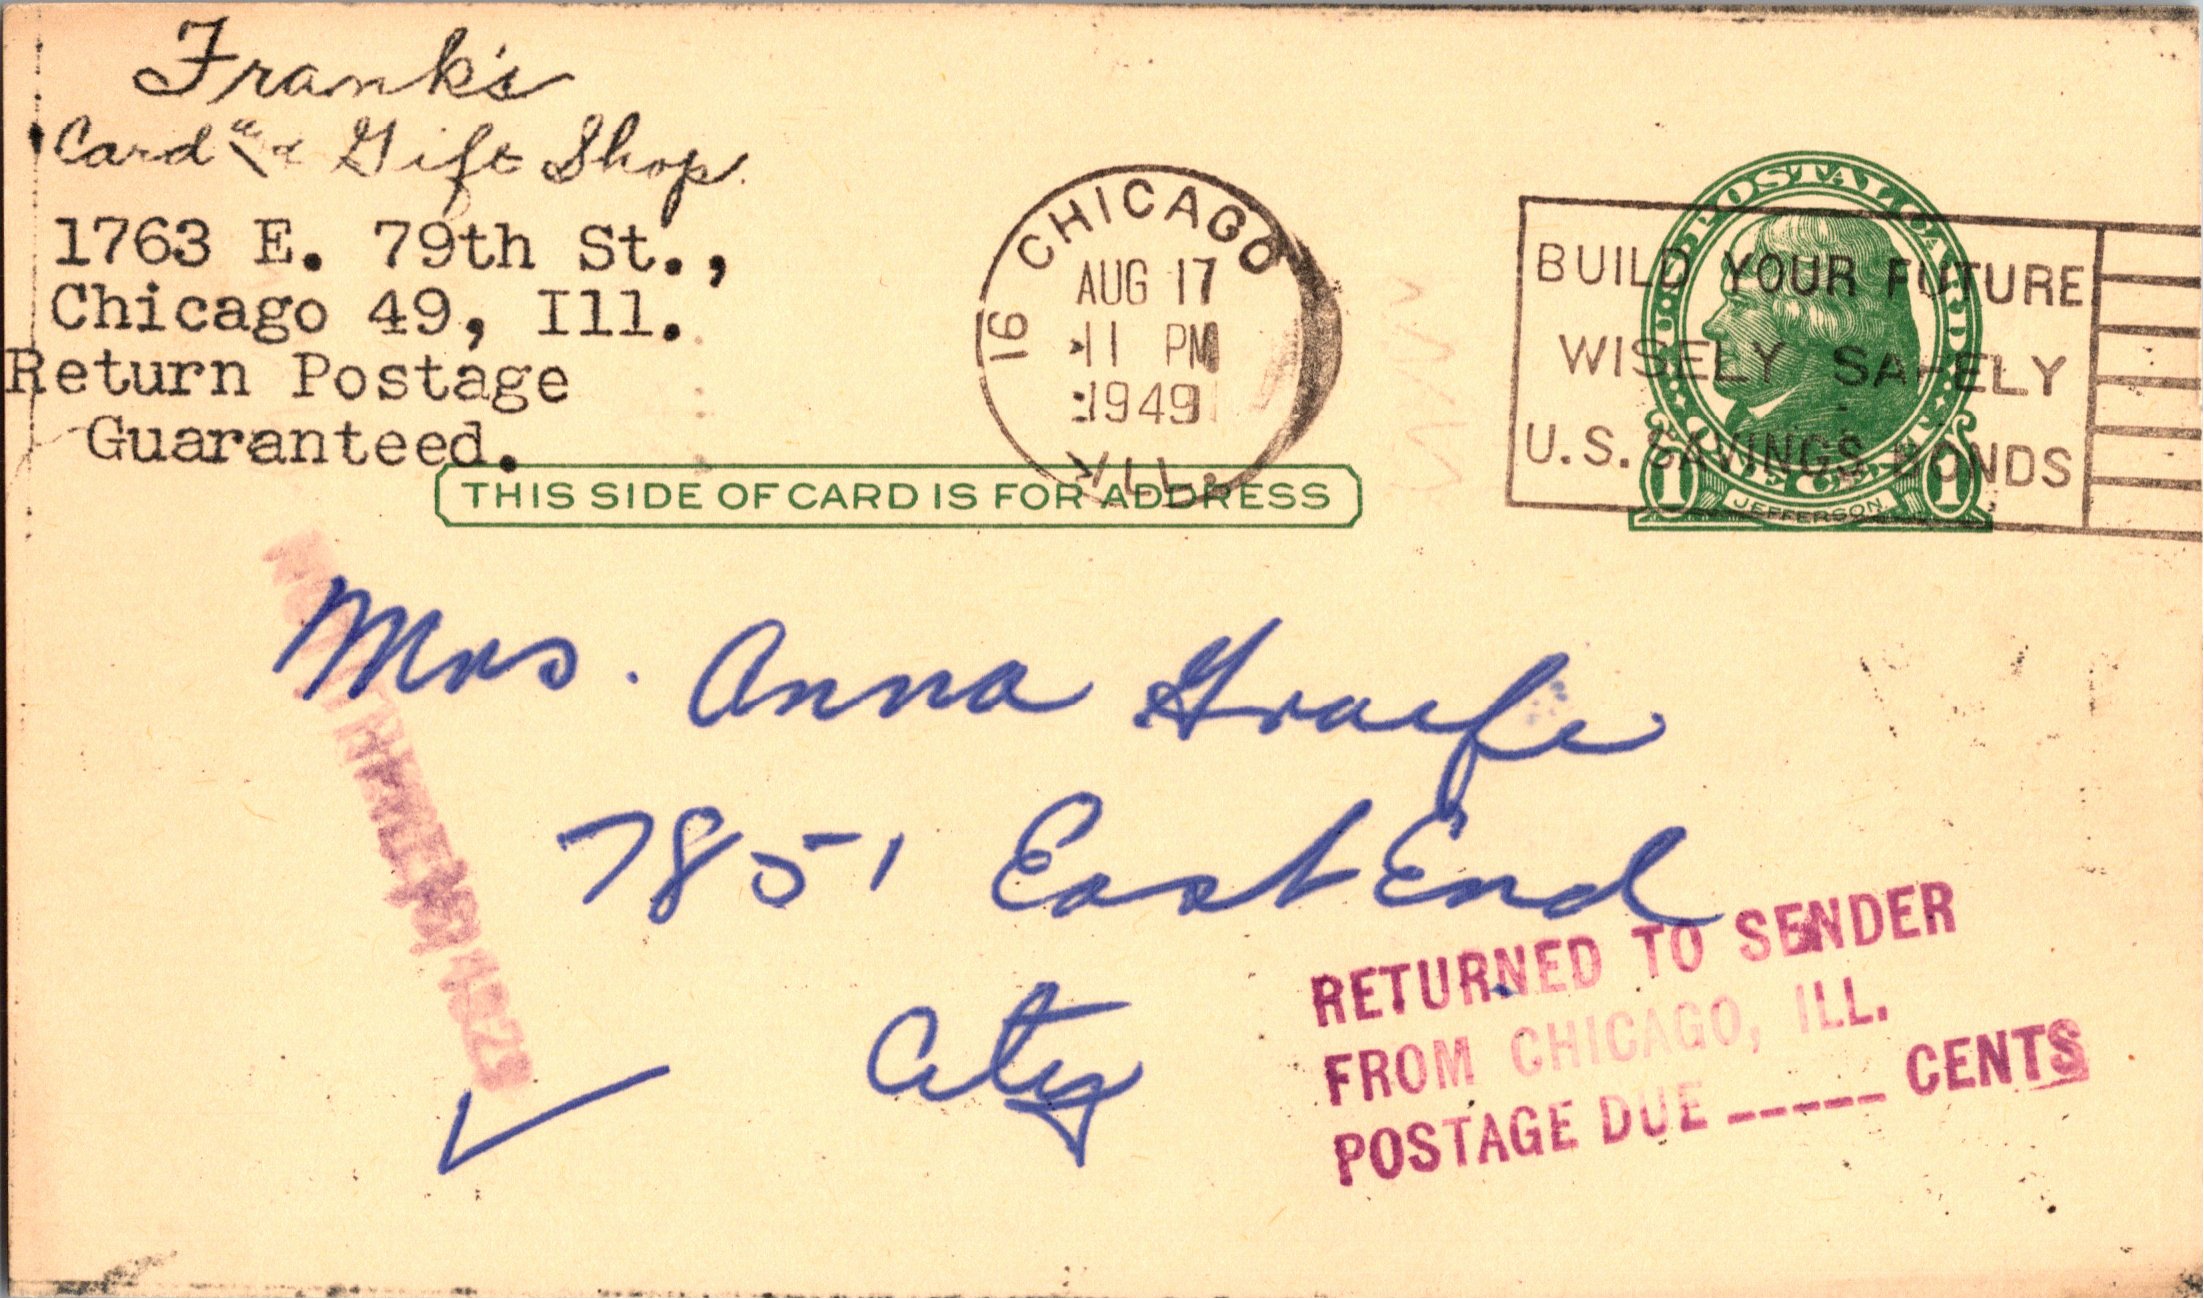 Frank's
Card & Gift Shop.
1763 E. 79th St.,
Chicago 49, Ill.
Return Postage
Guaranteed.
16 CHICAGO
AUG 17
11 PM
1949
ILL.
U.S. POSTAL CARD
BUILD YOUR FUTURE
WISELY SAFELY
U.S. SAVINGS BONDS
1 1
JEFFERSON
THIS SIDE OF CARD IS FOR ADDRESS
Mrs. Anna Graefe
7851 East End
City
RETURNED TO SENDER
FROM CHICAGO, ILL.
POSTAGE DUE ----- CENTS